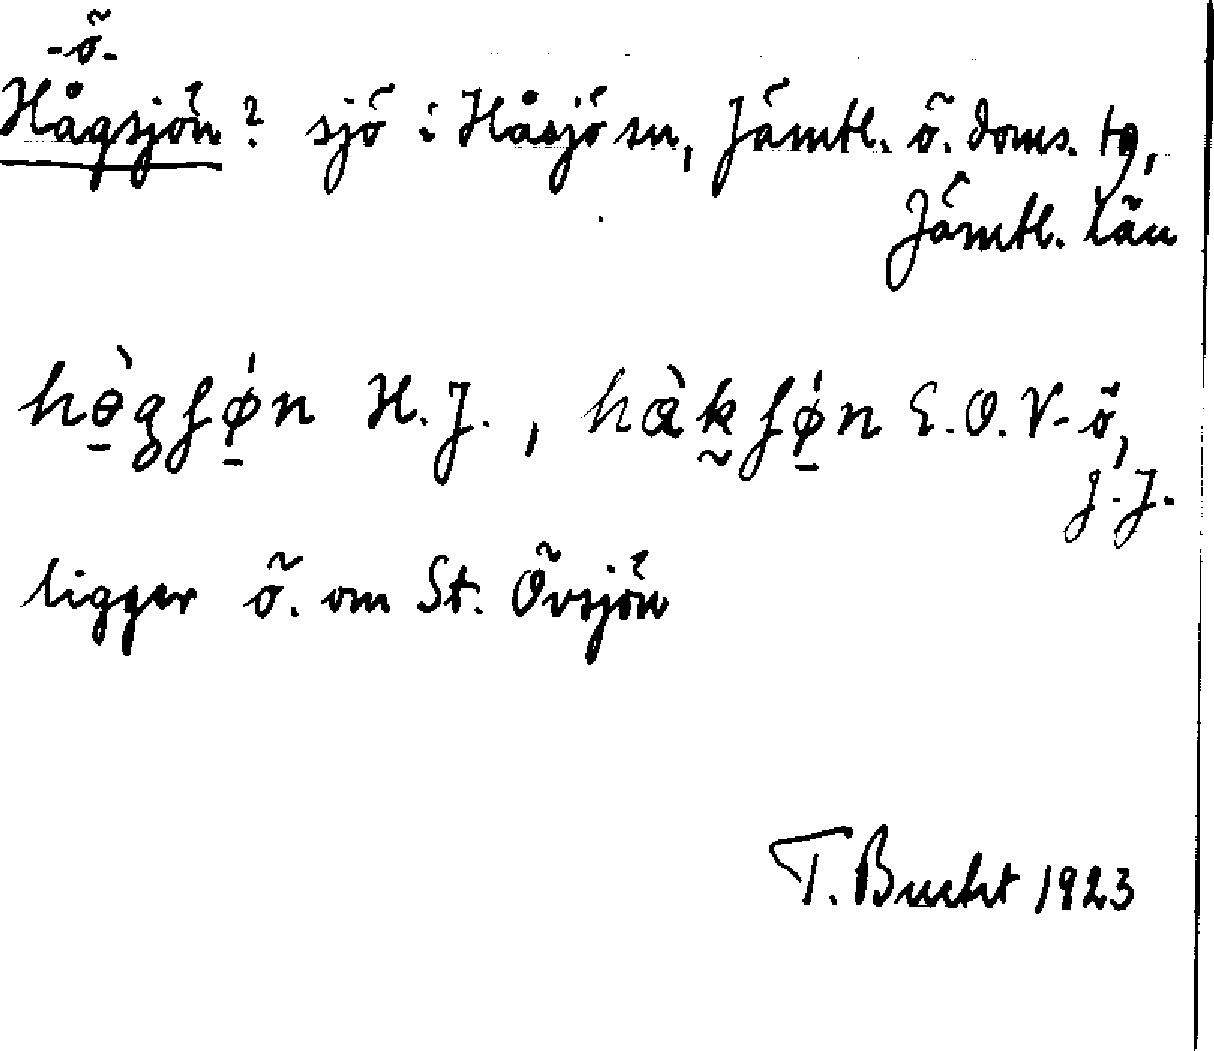 -ö-
Hågsjön? sjö i Håsjö sn, Jämtl. ö. doms. tg,
Jämtl. län
hɵ̠̀gʃǿ̠n H.J., hàk̰ʃǿ̠n E.O.V-ö,
J.J.
ligger ö. om St. Övsjön
T. Bucht 1923